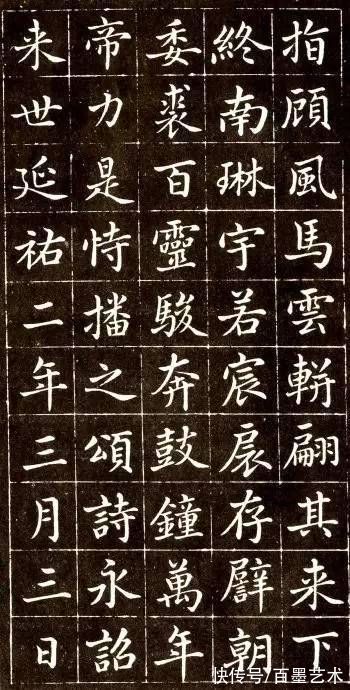 指顧風馬雲軿翩其来下
終南琳宇若宸扆存譬朝
委裘百靈駿奔鼓鐘萬年
帝力是恃播之頌詩永詔
来世延祐二年三月三日
快传号/百墨艺术